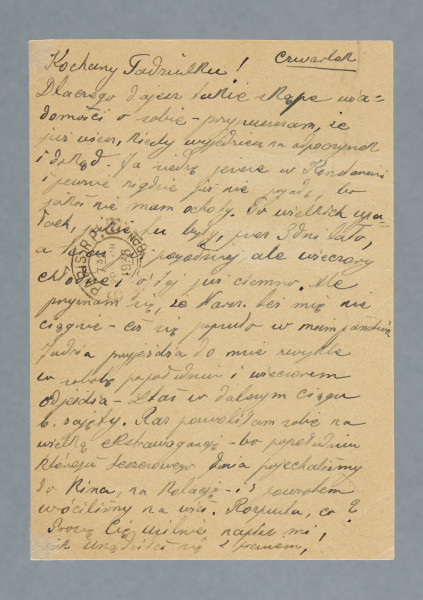 Czwartek
Kochany Tadziulku!
Dlaczego dajesz takie skąpe wia-
domości o sobie - przypuszczam, że
już wiesz, kiedy wyjedziesz na odpoczynek
i dokąd. Ja siedzę jeszcze w
i pewnie nigdzie już nie pojadę, bo
jakoś nie mam ochoty. Po wielkich upa-
łach, jakie tu były, przez 3 dni lało,
a teraz pogodniej ale wieczory
chłodne, i o tej już ciemno. Ale
przyznam się, że Warsz. też mię nie
ciągnie - coś się popsuło w mem państwie
Jadzia przyjeżdża do mnie zwykle
w sobotę popołudniu i wieczorem
odjeżdża - Staś w dalszym ciągu
b. zajęty. Raz pozwoliłam sobie na
wielką ekstrawagancję - bo popołudniu
któregoś deszczowego dnia pojechaliśmy
do Kina, na Kolację - i z powrotem
wróciliśmy na wieś. Rozpusta, co?
Proszę Cię usilnie napisz mi,
jak urządziłeś się z praniem,